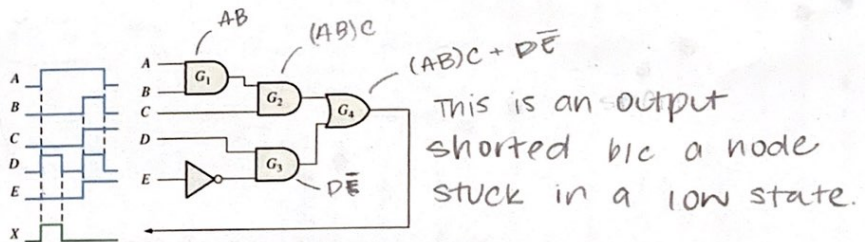 AB
(AB)C
(AB)C + DE̅
A
B
C
D
E
G₁
G₂
G₃
G₄
DE̅
A
B
C
D
E
X
This is an output
shorted b/c a node
stuck in a low state.